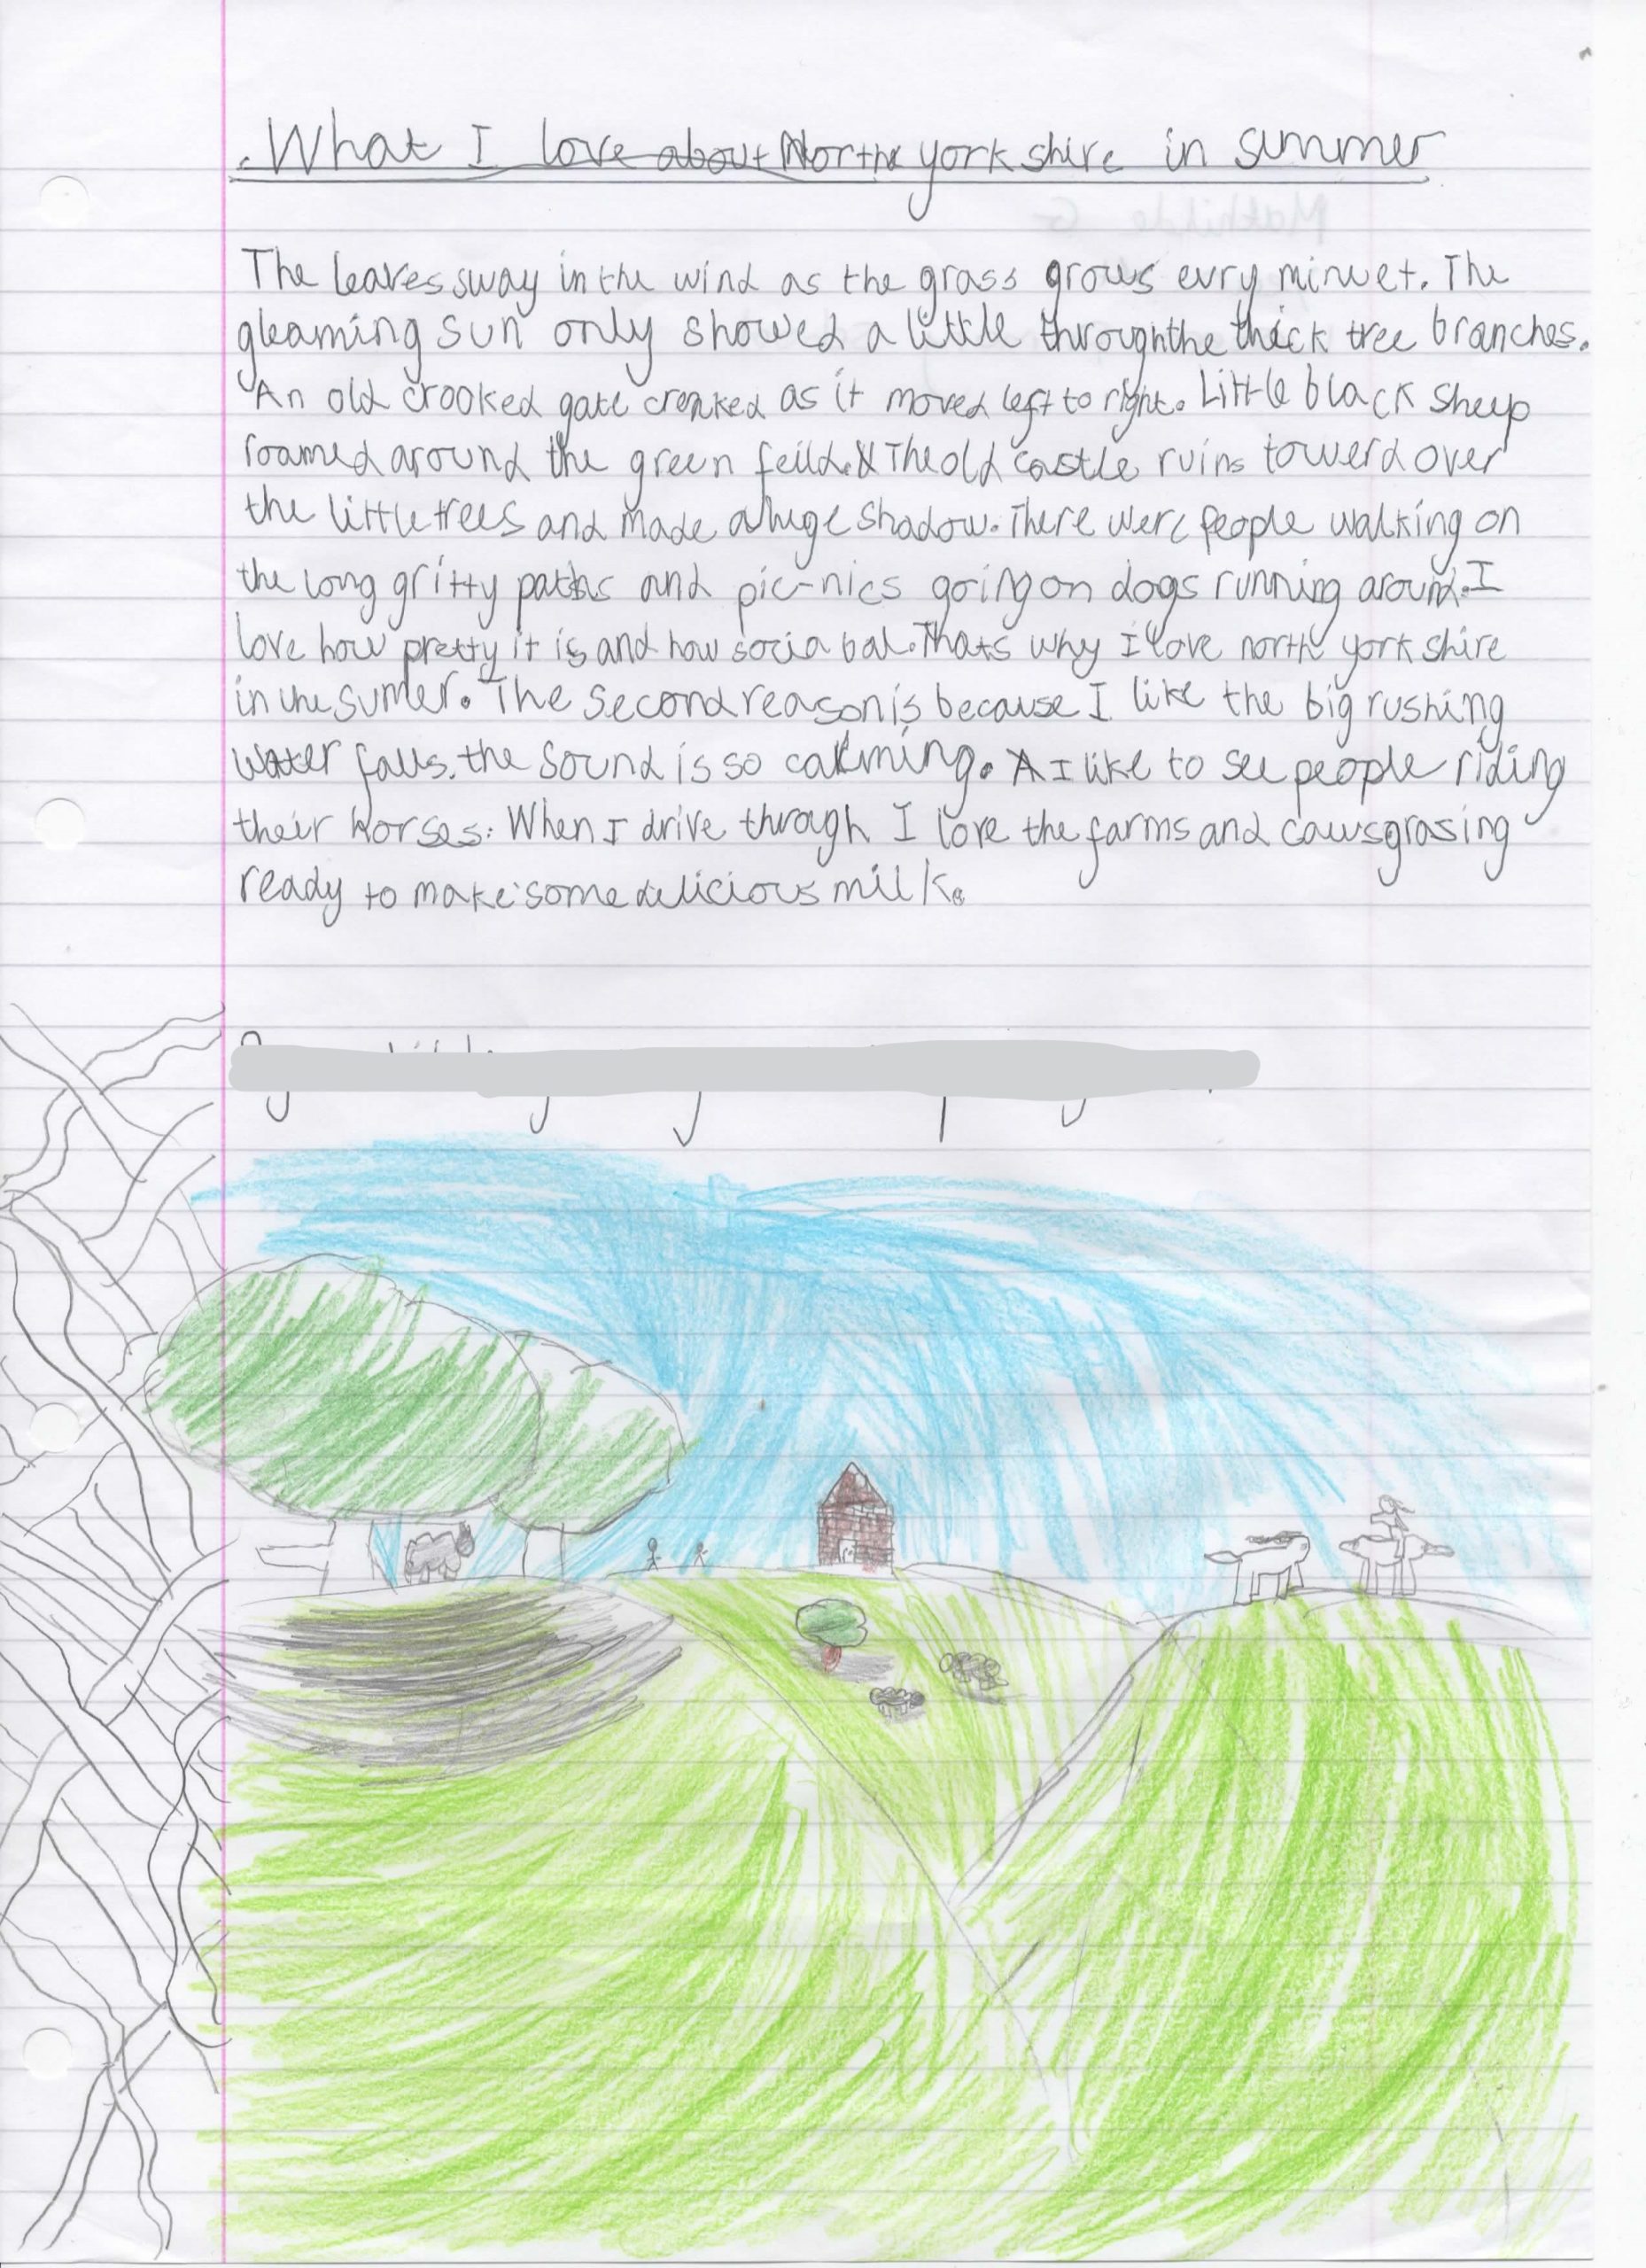 What I love about North yorkshire in summer
The leaves sway in the wind as the grass grows evry minuet. The
gleaming sun only showed a little through the thick tree branches.
An old crooked gate creaked as it moved left to right. Little black sheep
roamed around the green feild. The old castle ruins towerd over
the little trees and made a huge shadow. There were people walking on
the long gritty paths and pic-nics going on dogs running around. I
love how pretty it is and how socia bal. Thats why I love north york shire
in the sumer. The second reason is because I like the big rushing
water falls. the sound is so calming. I like to see people riding
their horses. When I drive through I love the farms and caws grasing
ready to make some delicious milk.